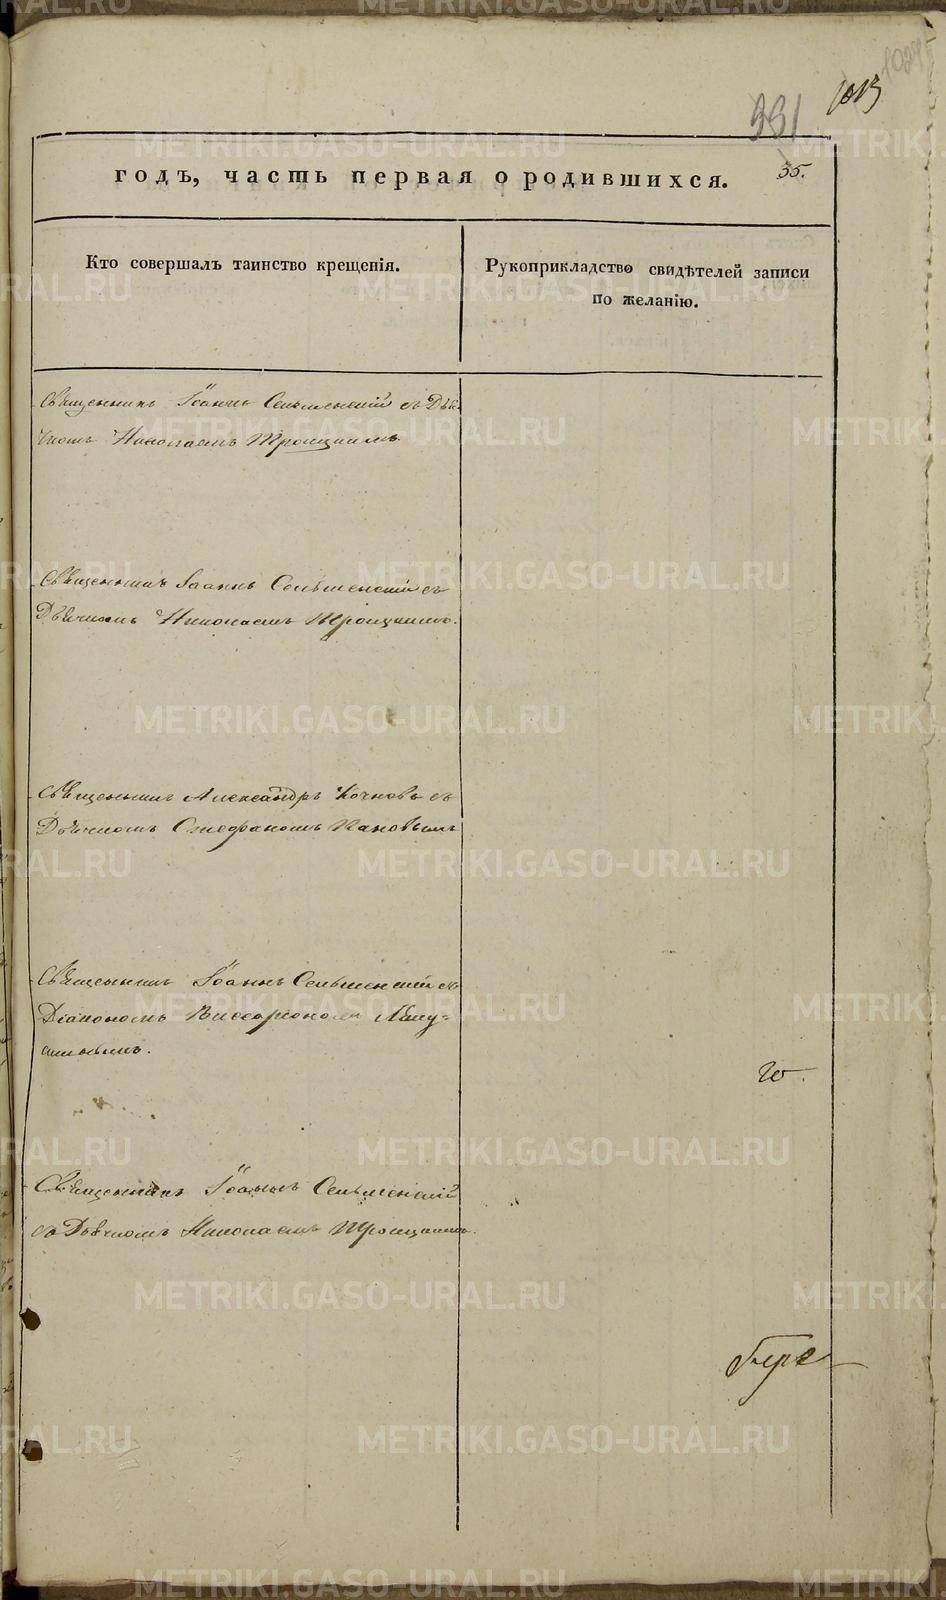 1013
331
годъ, часть первая о родившихся.
35.
Кто совершалъ таинство крещенія.
Рукоприкладство свидѣтелей записи
по желанію.
Священникъ Іоаннъ Сельменскій съ Дья-
чкомъ Николаемъ Троицкимъ
Священникъ Іоаннъ Сельменскій съ
Дьячкомъ Николаемъ Троицкимъ.
Священникъ Александръ Кочневъ съ
Дьячкомъ Стефаномъ
Священникъ Іоаннъ Сельменскій съ
Діакономъ Виссаріономъ
Священникъ Іоаннъ Сельменскій
съ Дьячкомъ Николаемъ Троицкимъ.
METRIKI.GASO-URAL.RU